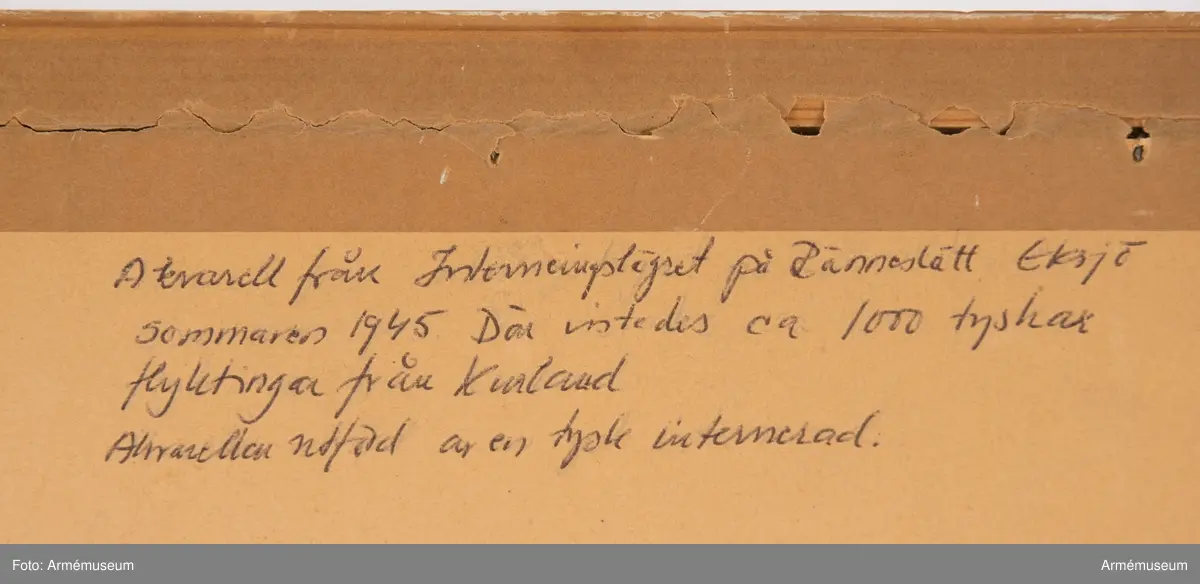 Akvarell från Interneringslägret på Ränneslätt Eksjö
sommaren 1945. Där vistades ca 1000 tyskar
flyktingar från Kurland
Akvarellen utförd av en tysk internerad.
Foto: Armémuseum
Armémuseum